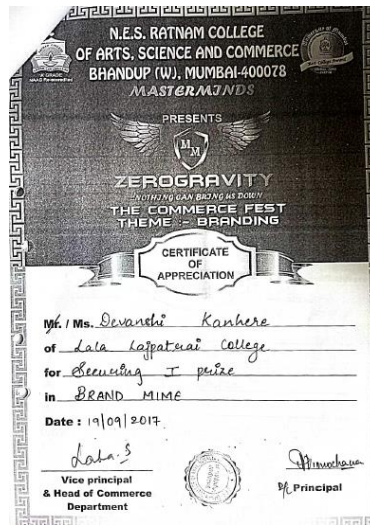 N.E.S. RATNAM COLLEGE
OF ARTS, SCIENCE AND COMMERCE
BHANDUP (W), MUMBAI-400078
MASTERMINDS
'A' GRADE
PRESENTS
M M
ZEROGRAVITY
NOTHING CAN BRING US DOWN
THE COMMERCE FEST
THEME :- BRANDING
CERTIFICATE
OF
APPRECIATION
Mr. / Ms. Devanshi Kanhere
of Lala Lajpatrai College
for Securing I prize
in BRAND MIME
Date : 19/09/2017
Vice principal
& Head of Commerce
Department
I/C Principal